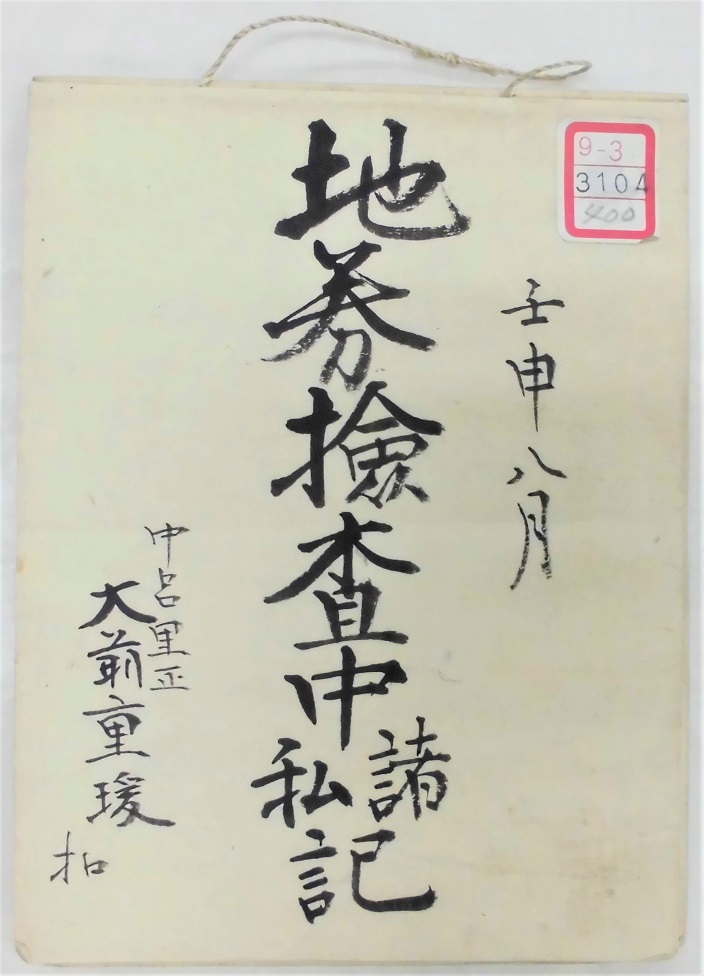 9-3
3104
400
壬申八月
地券撿査中諸私記
中呂里正
大前重瑗
扣